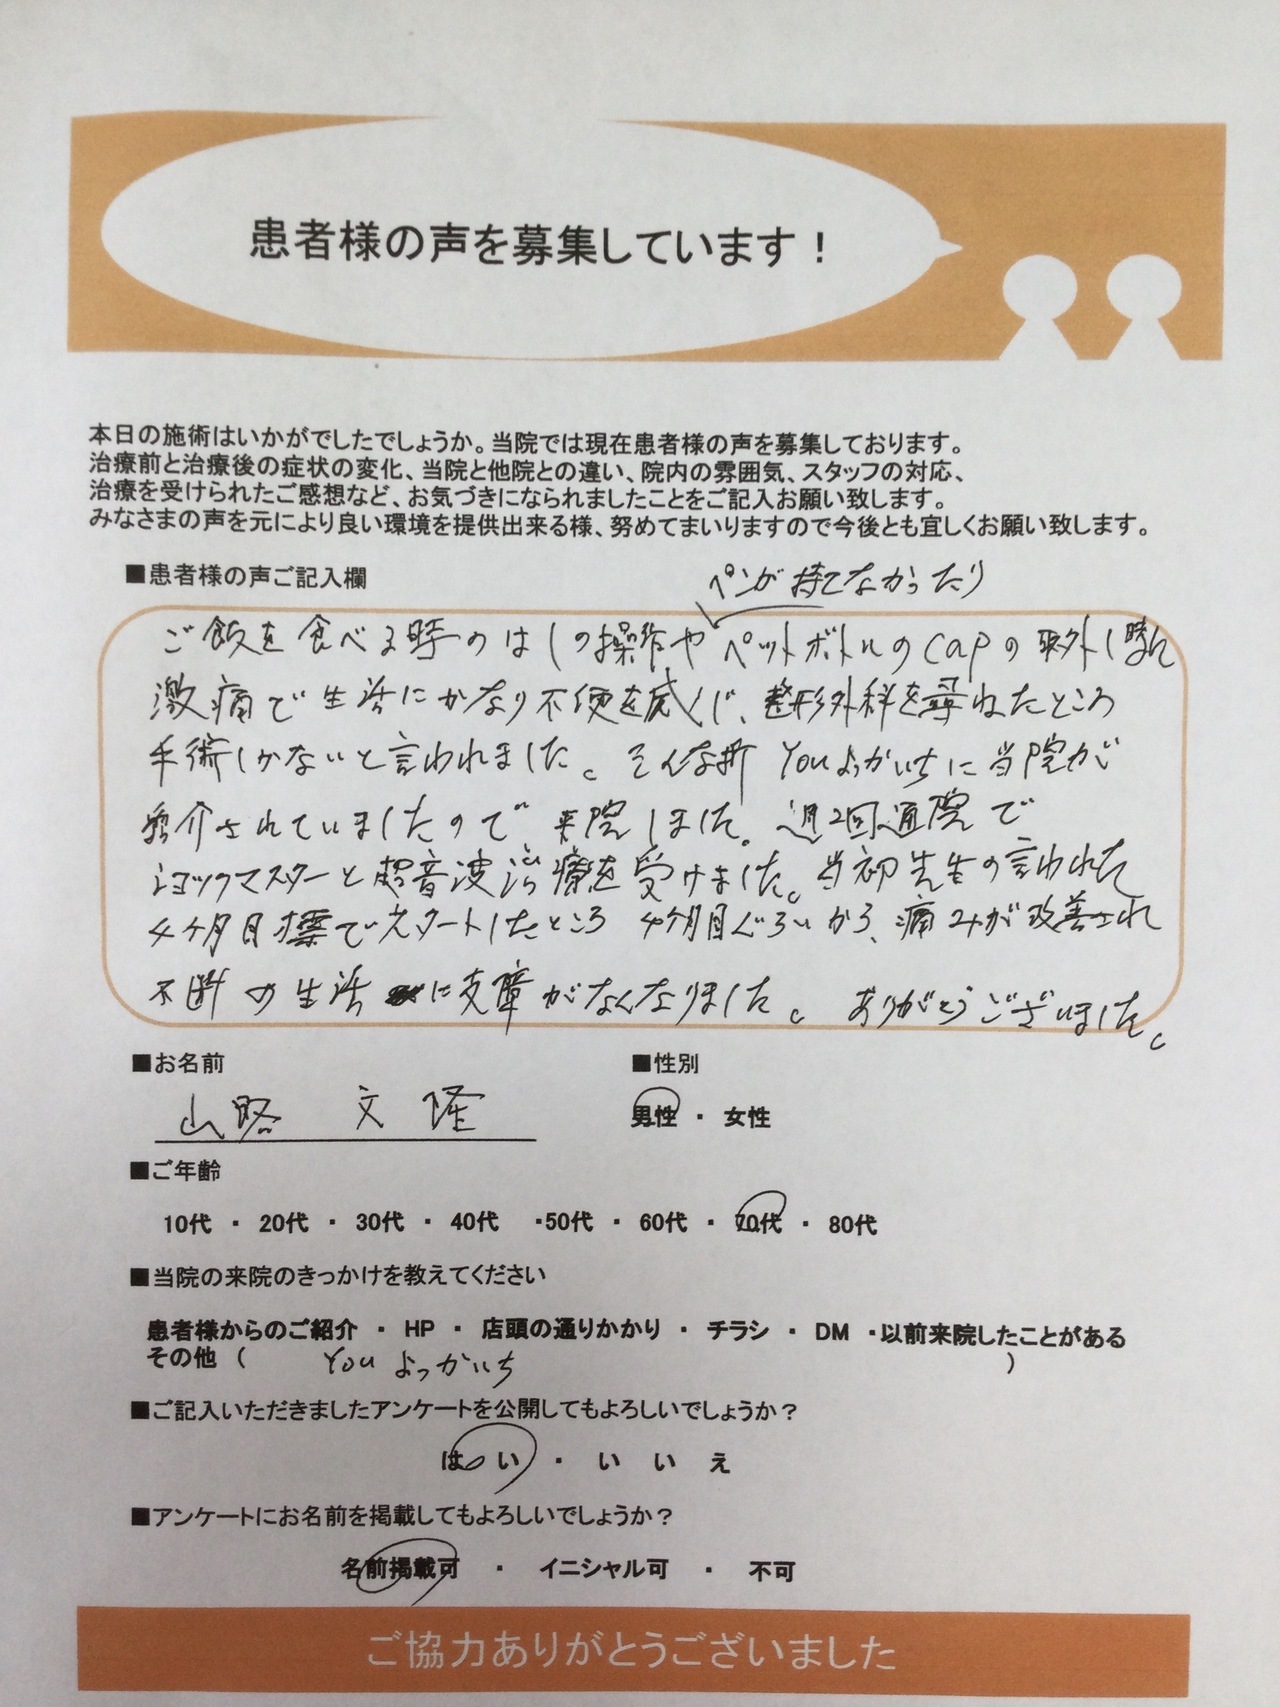 患者様の声を募集しています!
本日の施術はいかがでしたでしょうか。当院では現在患者様の声を募集しております。
治療前と治療後の症状の変化、当院と他院との違い、院内の雰囲気、スタッフの対応、
治療を受けられたご感想など、お気づきになられましたことをご記入お願い致します。
みなさまの声を元により良い環境を提供出来る様、努めてまいりますので今後とも宜しくお願い致します。
■患者様の声ご記入欄
ペンが持てなかったり
ご飯を食べる時のはしの操作やペットボトルのcapの取外し時に
激痛で生活にかなり不便を感じ、整形外科を尋ねたところ
手術しかないと言われました。そんな折 Youよっかいちに当院が
紹介されていましたので 来院しました。週2回通院で
ショックマスターと超音波治療を受けました。当初先生の言われた
4ケ月目標でスタートしたところ 4ケ月目ぐらいから、痛みが改善され
不断の生活に支障がなくなりました。ありがとうございました。
■お名前 ■性別
山路 文隆 男性 ・ 女性
■ご年齢
10代 ・ 20代 ・ 30代 ・ 40代 ・50代 ・ 60代 ・ 70代 ・ 80代
■当院の来院のきっかけを教えてください
患者様からのご紹介 ・ HP ・ 店頭の通りかかり ・ チラシ ・ DM ・以前来院したことがある
その他 ( You よっかいち )
■ご記入いただきましたアンケートを公開してもよろしいでしょうか?
はい ・ いいえ
■アンケートにお名前を掲載してもよろしいでしょうか?
名前掲載可 ・ イニシャル可 ・ 不可
ご協力ありがとうございました